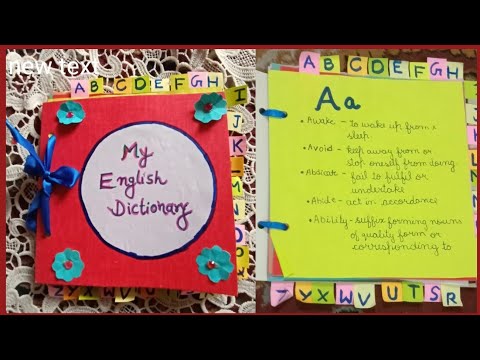 new text
A B C D E F G H
I
J
K
My
English
Dictionary
A B C D E F G H
Aa
• Awake - to wake up from a
sleep.
• Avoid - keep away from or
stop oneself from doing.
• Abdicate - fail to fulfil or
undertake
• Abide - act in accordance
• Ability - suffix forming nouns
of quality form or
corresponding to
Y X W V U T S R